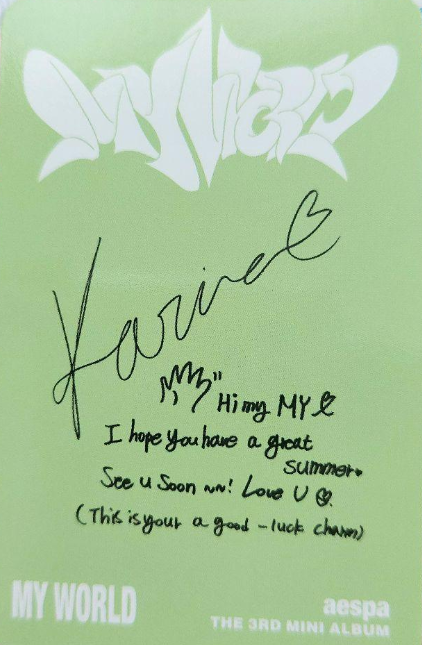 MY WORLD
Karina
Hi my MY
I hope you have a great
summer
See u Soon ~~! Love U
(This is your a good-luck charm)
MY WORLD
aespa
THE 3RD MINI ALBUM